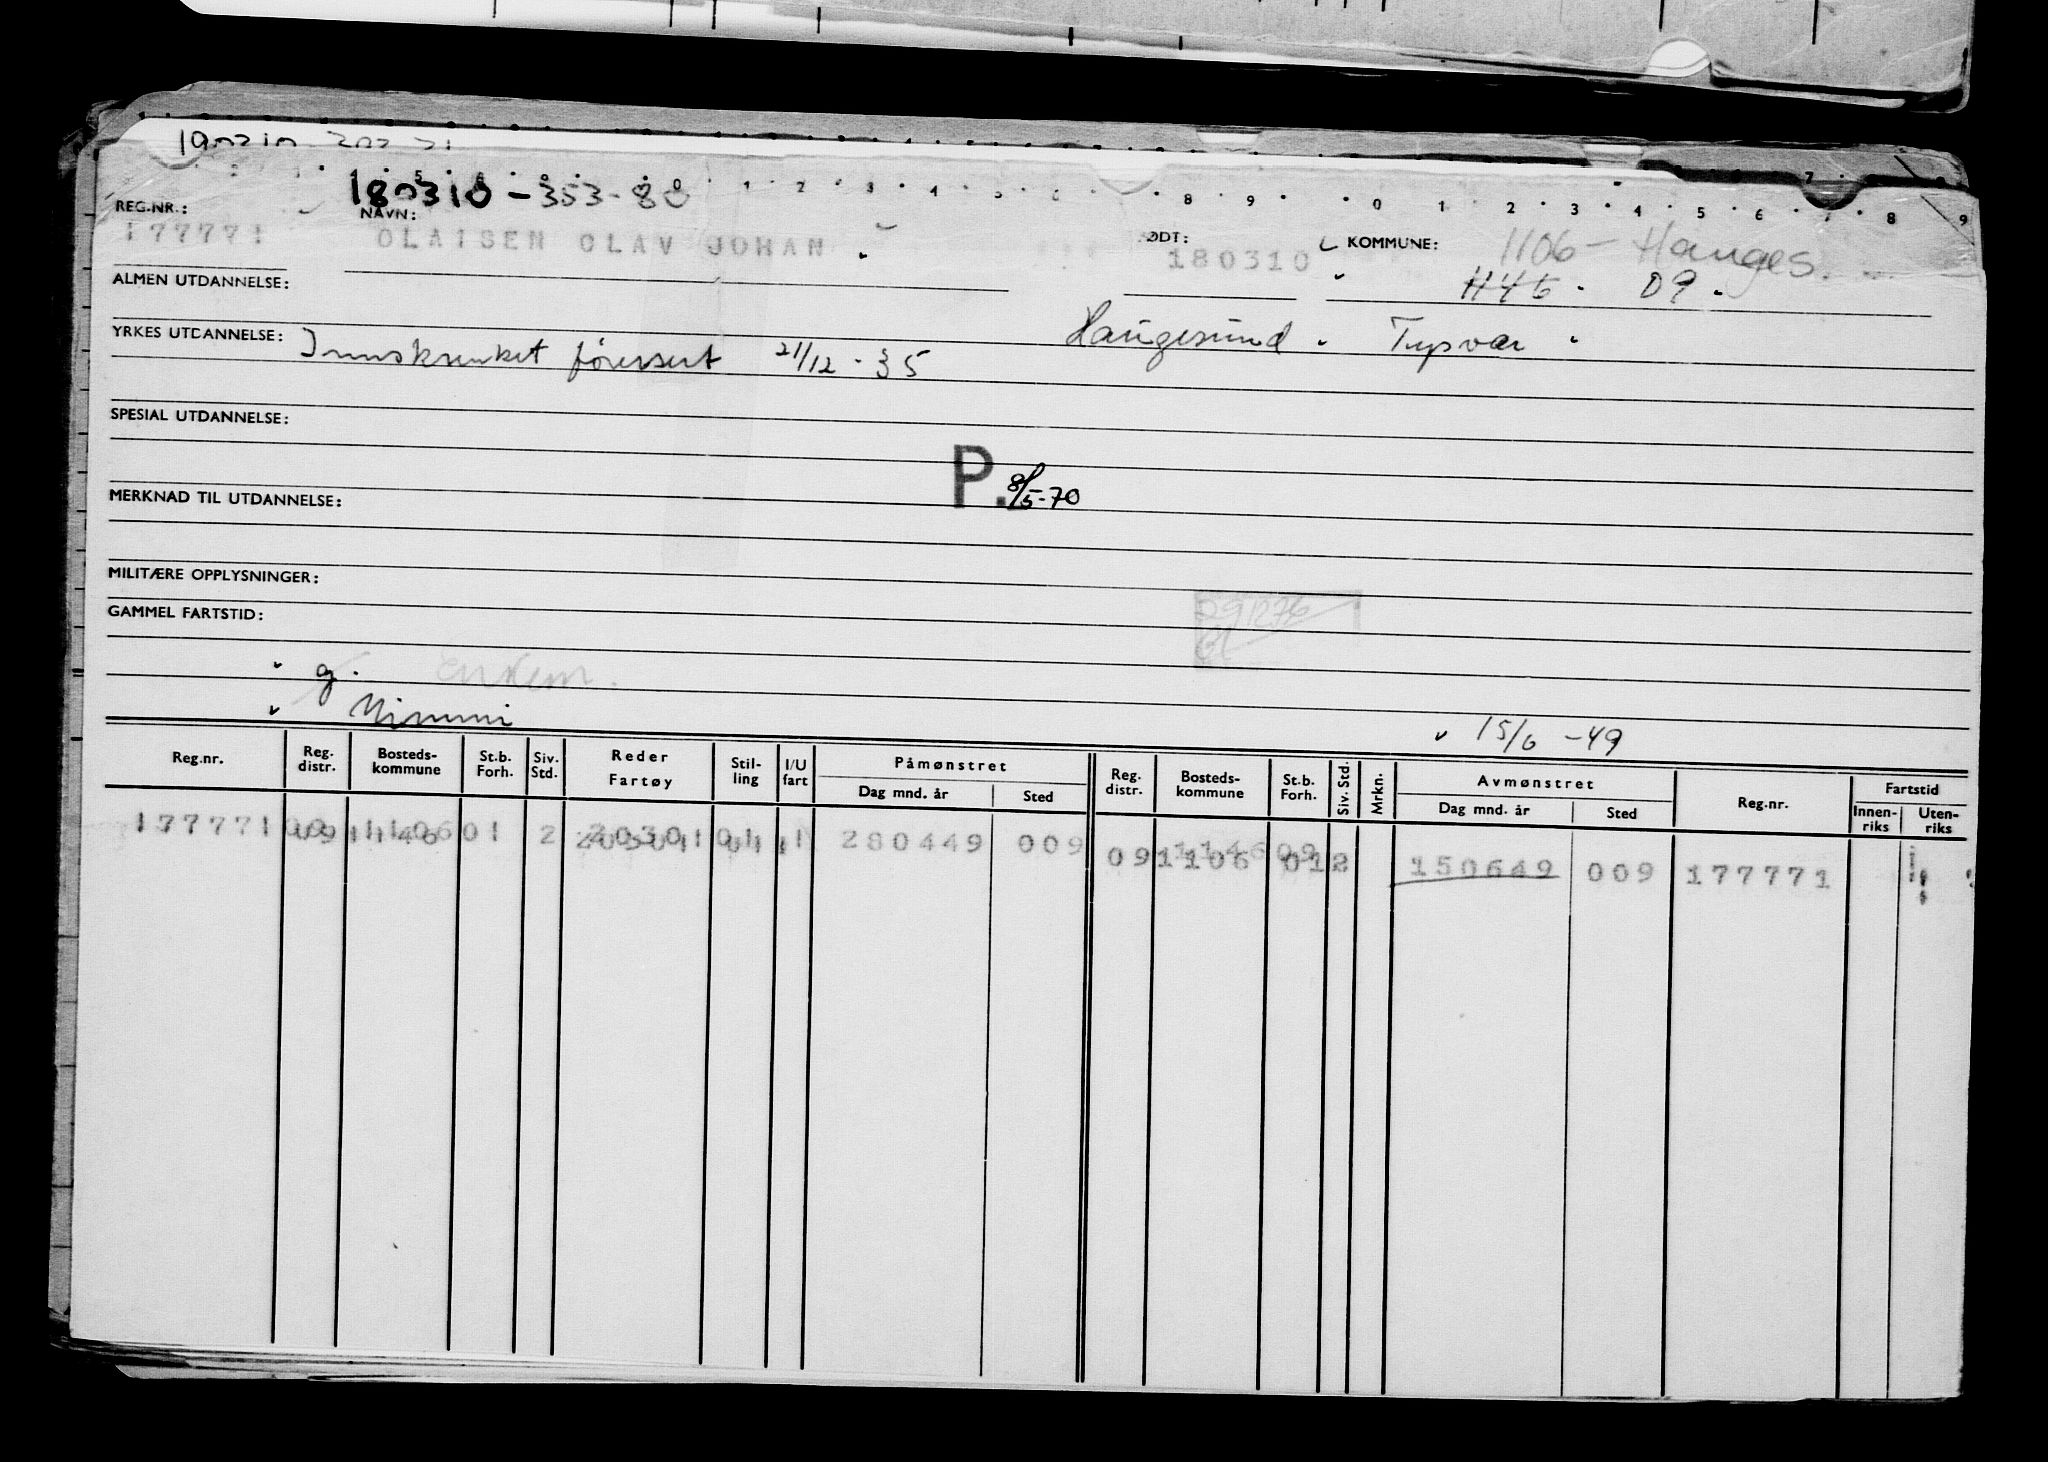 180310-353-80
REG.NR.: NAVN: FØDT: KOMMUNE: 1106 - Hauges.
177771 OLAISEN OLAV JOHAN 180310
1145 09
ALMEN UTDANNELSE:
Haugesund Tysvær
YRKES UTDANNELSE: Innskrenket førersert 21/12-35
SPESIAL UTDANNELSE:
P. 8/5-70
MERKNAD TIL UTDANNELSE:
MILITÆRE OPPLYSNINGER:
291276
GAMMEL FARTSTID:
g.
Mimmi 15/6-49
Reg.nr. Reg. distr. Bosteds-kommune St.b. Forh. Siv. Std. Reder Fartøy Stil-ling I/U fart Påmønstret Dag mnd. år Sted Reg. distr. Bosteds-kommune St.b. Forh. Siv. Std. Mrkn. Avmønstret Dag mnd. år Sted Reg.nr. Fartstid Innen-riks Uten-riks
177771 09 01 2 280449 009 09 2 150649 009 177771